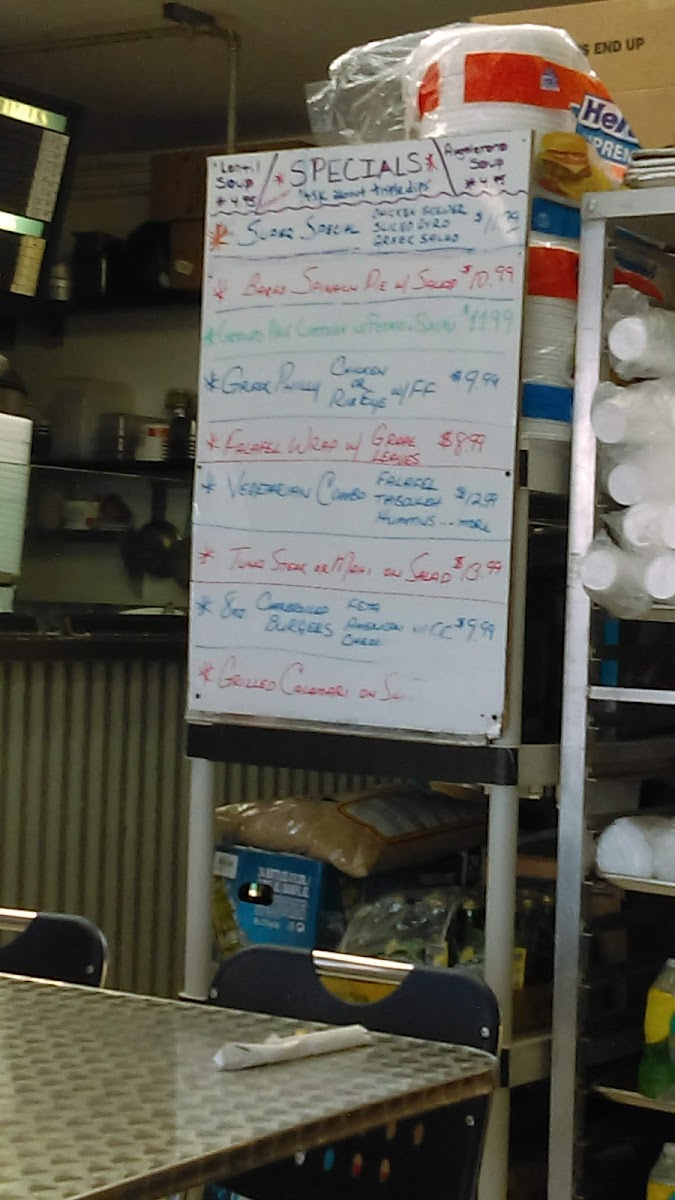 S END UP
Lentil
Soup
$4.95
* SPECIALS *
"Ask about triple dips"
Avgolemono
Soup
$4.95
* Super Special
CHICKEN SOUVLAKI
SLICED GYRO
GREEK SALAD
* Baked Spinach Pie w/ Salad $10.99
* w/ Potato Salad $11.99
* Greek Philly Chicken
or
Ribeye w/ FF $9.99
* Falafel Wrap w/ Grape
Leaves $8.99
* Vegetarian Combo Falafel
Tabouleh
Hummus ... more $12.99
* Tuna Steak or Mahi on Salad $13.99
* 8oz Charbroiled
Burgers
Feta
American
Cheese
w/ FF $9.99
* Grilled Calamari on
Hef
PREM